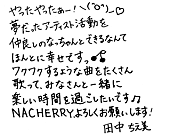 やったやったぁー!＼(^o^)_♡
夢だったアーティスト活動を
仲良しのなっちゃんとできるなんて
ほんとに幸せですっ♪
ワクワクするような曲をたくさん
歌って、みなさんと一緒に
楽しい時間を過ごしたいです♫
NACHERRY、よろしくお願いします!
田中 ちえ美